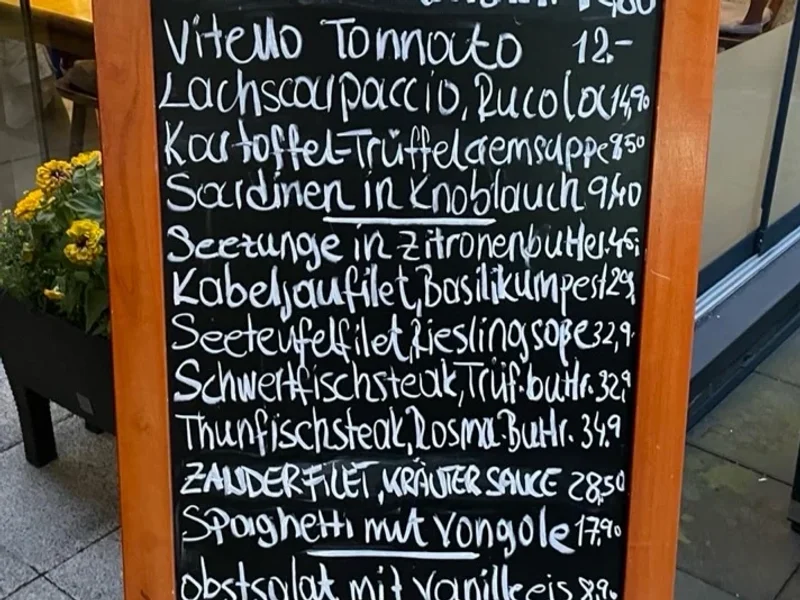 Vitello Tonnato 12.-
Lachscarpaccio, Rucola 14,90
Kartoffel-Trüffelcremsuppe 9,50
Sardinen in Knoblauch 9,40
Seezunge in Zitronenbutter 45,-
Kabeljaufilet, Basilikumpest 29,
Seeteufelfilet, Rieslingsoße 32,9
Schwertfischsteak, Trüf.buttr. 32,9
Thunfischsteak, Rosma.Buttr. 34.9
ZANDERFILET, KRÄUTER SAUCE 28,50
Spaghetti mit Vongole 17,90
obstsalat mit Vanilleeis 8,90